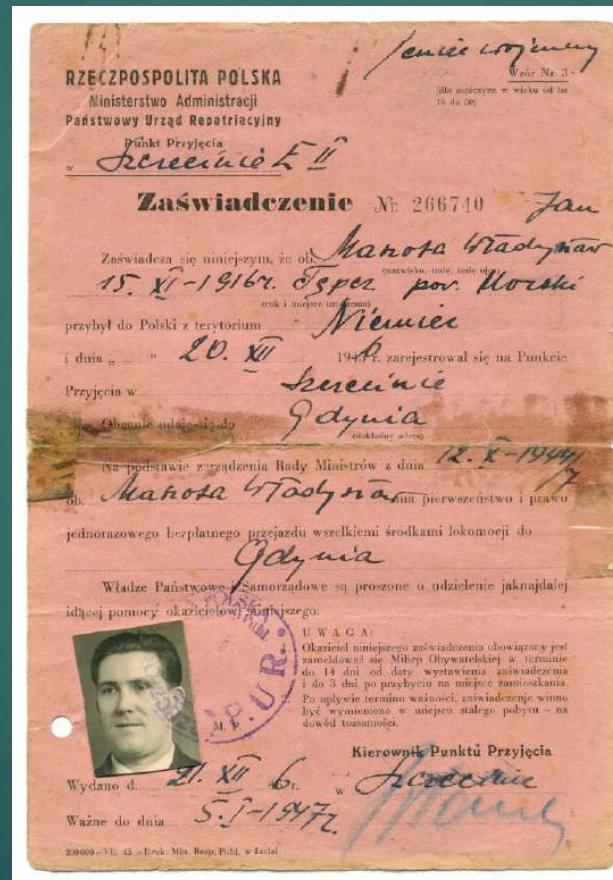 jeniec wojenny
Wzór Nr. 3
(dla mężczyzn w wieku od lat
16 do 50)
RZECZPOSPOLITA POLSKA
Ministerstwo Administracji
Państwowy Urząd Repatriacyjny
Punkt Przyjęcia
w Szczecinie E II
Zaświadczenie Nr. 266740 Jan
Zaświadcza się niniejszym, że ob. Władysław
(nazwisko, imię, imię ojca)
15. XI-1916r. pow. Morski
(rok i miejsce urodzenia)
przybył do Polski z terytorium Niemiec
i dnia „ “ 20. XII 1946 r. zarejestrował się na Punkcie
Przyjęcia w Szczecinie
Obecnie udaje się do Gdynia
(dokładny adres)
Na podstawie zarządzenia Rady Ministrów z dnia 12. X-1944
ob. Władysław ma pierwszeństwo i prawo
jednorazowego bezpłatnego przejazdu wszelkiemi środkami lokomocji do
Gdynia
Władze Państwowe i Samorządowe są proszone o udzielenie jaknajdalej
idącej pomocy okazicielowi niniejszego.
UWAGA:
Okaziciel niniejszego zaświadczenia obowiązany jest
zameldować się Milicji Obywatelskiej w terminie
do 14 dni od daty wystawienia zaświadczenia
i do 3 dni po przybyciu na miejsce zamieszkania.
Po upływie terminu ważności, zaświadczenie winno
być wymienione w miejscu stałego pobytu – na
dowód tożsamości.
P.U.R.
M. P.
Kierownik Punktu Przyjęcia
Wydano d. 21. XII 6 r. w Szczecinie
Ważne do dnia 5. I-1947r.
200000 – VII. 45. – Druk. Min. Bezp. Publ. w Łodzi